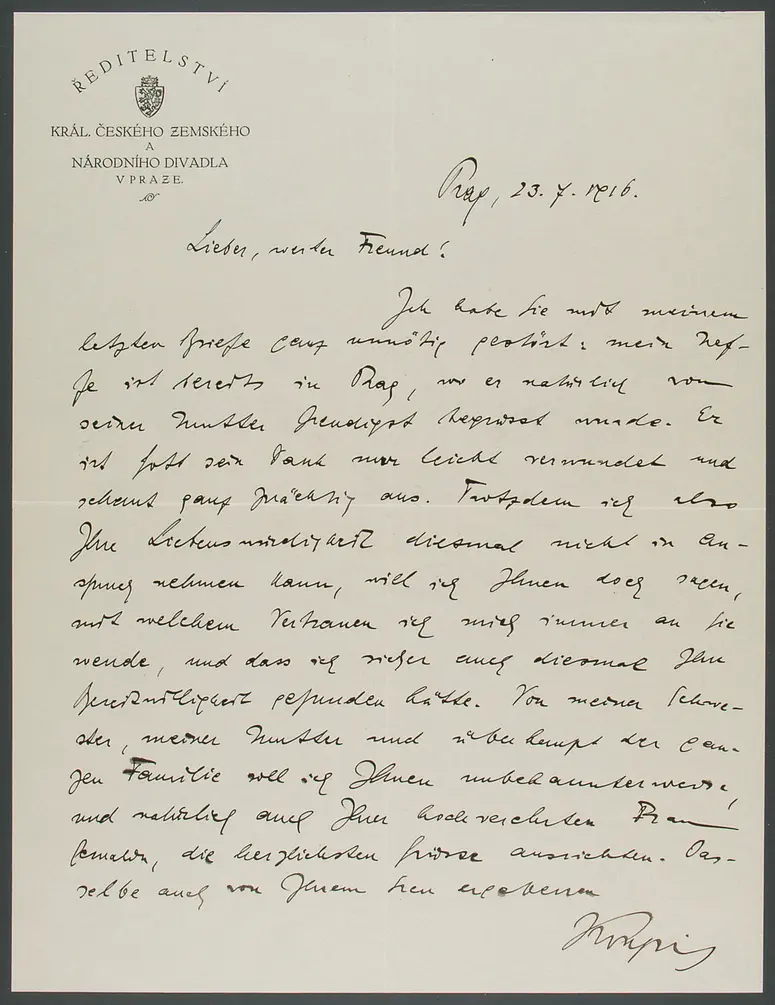 ŘEDITELSTVÍ
KRÁL. ČESKÉHO ZEMSKÉHO
A
NÁRODNÍHO DIVADLA
V PRAZE.
Prag, 23. 7. 1916.
Lieber, werter Freund!
Ich habe Sie mit meinem
letzten Briefe ganz unnötig gestört: mein Nef-
fe ist bereits in Prag, wo er natürlich von
seiner Mutter freudigst begrüsst wurde. Er
ist Gott sei Dank nur leicht verwundet und
schaut ganz prächtig aus. Trotzdem ich also
Ihre Liebenswürdigkeit diesmal nicht in An-
spruch nehmen kann, will ich Ihnen doch sagen,
mit welchem Vertrauen ich mich immer an Sie
wende, und dass ich sicher auch diesmal Ihre
Bereitwilligkeit gefunden hätte. Von meiner Schwe-
ster, meiner Mutter und überhaupt der gan-
zen Familie soll ich Ihnen unbekannterweise,
und natürlich auch Ihrer hochverehrten Frau
Gemahlin, die herzlichsten Grüsse ausrichten. Das-
selbe auch von Ihrem treu ergebenen